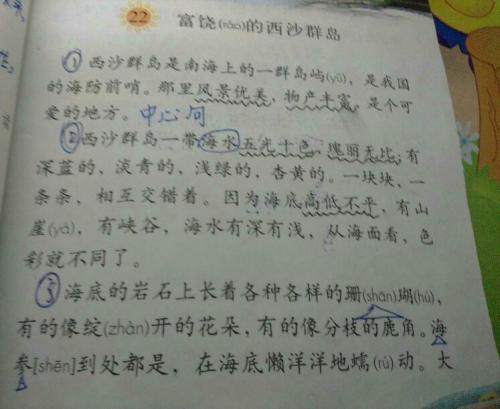 22 富饶(ráo)的西沙群岛
① 西沙群岛是南海上的一群岛屿(yǔ)，是我国
的海防前哨。那里风景优美，物产丰富，是个可
爱的地方。中心句
② 西沙群岛一带海水五光十色，瑰丽无比：有
深蓝的，淡青的，浅绿的，杏黄的。一块块，一
条条，相互交错着。因为海底高低不平，有山
崖(yá)，有峡谷，海水有深有浅，从海面看，色
彩就不同了。
③ 海底的岩石上长着各种各样的珊(shān)瑚(hú)，
有的像绽(zhàn)开的花朵，有的像分枝的鹿角。海
参[shēn]到处都是，在海底懒洋洋地蠕(rú)动。大